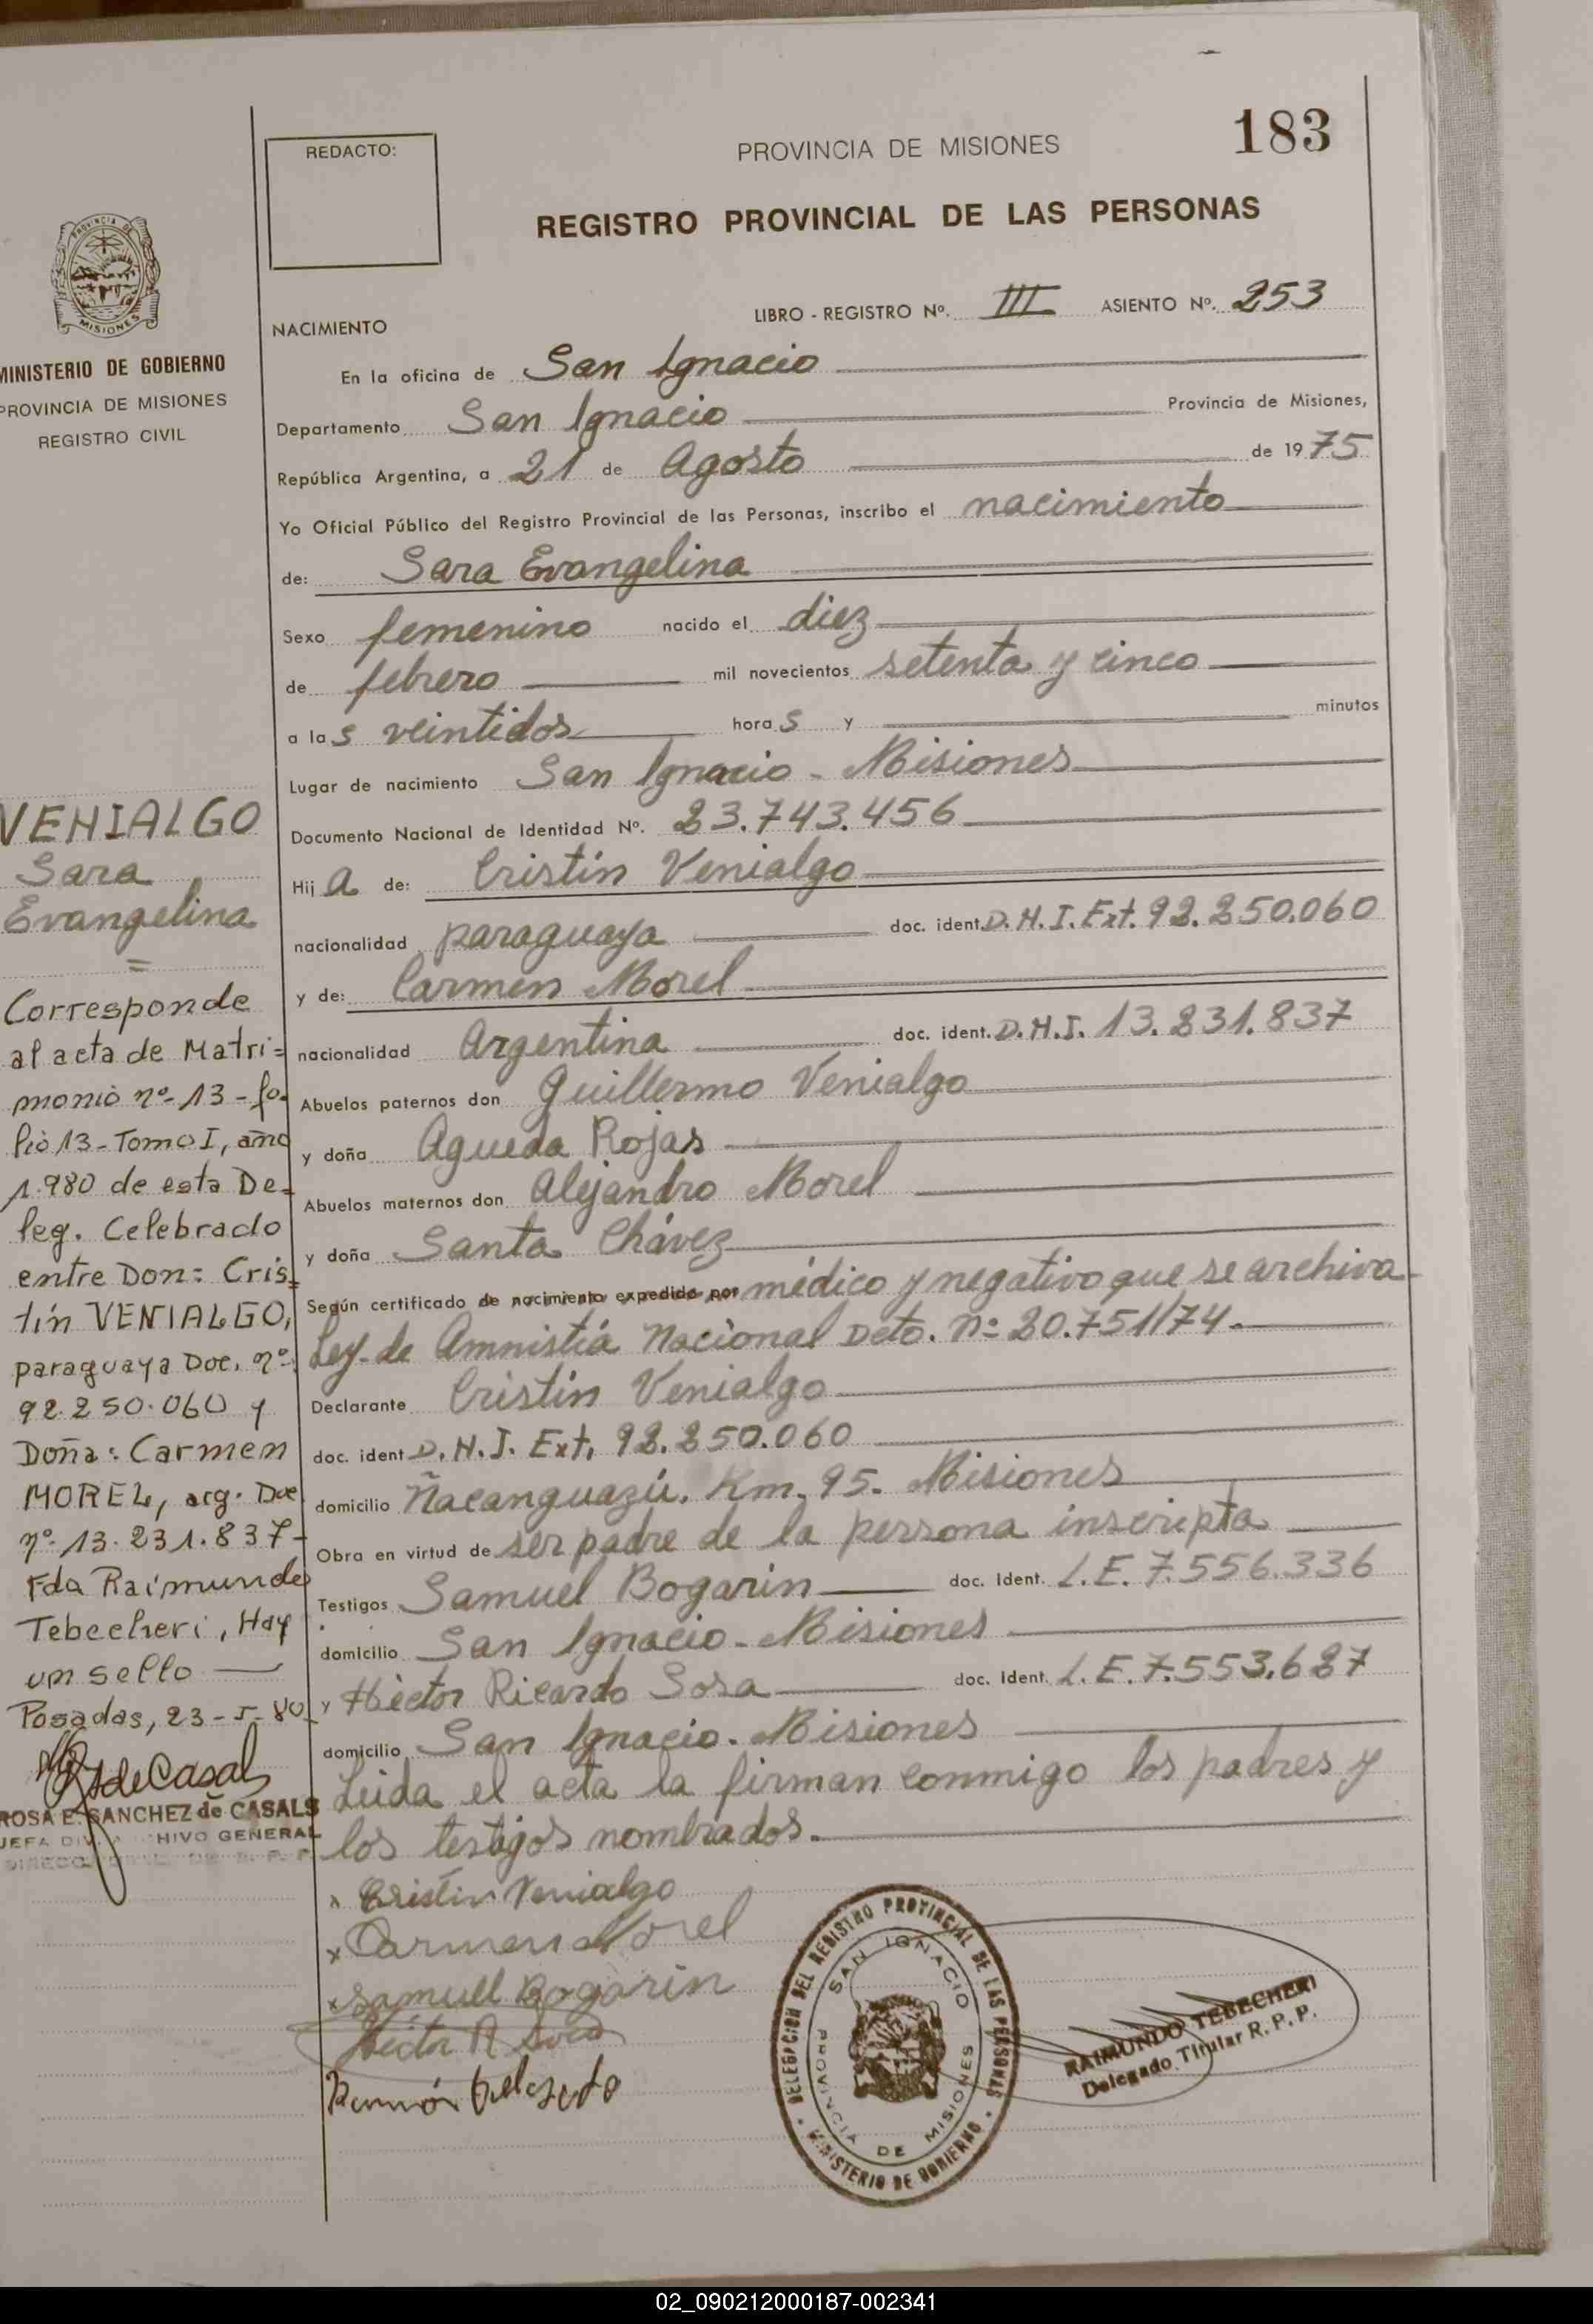 183
REDACTO:
PROVINCIA DE MISIONES
REGISTRO PROVINCIAL DE LAS PERSONAS
LIBRO - REGISTRO Nº. III ASIENTO Nº. 253
NACIMIENTO
En la oficina de San Ignacio
Departamento San Ignacio Provincia de Misiones,
República Argentina, a 21 de Agosto de 1975
Yo Oficial Público del Registro Provincial de las Personas, inscribo el nacimiento
de: Sara Evangelina
Sexo femenino nacido el diez
de febrero mil novecientos setenta y cinco
a las veintidos horas y minutos
Lugar de nacimiento San Ignacio - Misiones
Documento Nacional de Identidad Nº. 23.743.456
Hija de: Cristín Venialgo
nacionalidad paraguaya doc. ident. D.N.I. Ext. 92.250.060
y de: Carmen Morel
nacionalidad Argentina doc. ident. D.N.I. 13.231.837
Abuelos paternos don Guillermo Venialgo
y doña Agueda Rojas
Abuelos maternos don Alejandro Morel
y doña Santa Chávez
Según certificado de nacimiento expedido por médico y negativo que se archiva-
Ley de Amnistía Nacional Dcto. nº 20.751/74.
Declarante Cristín Venialgo
doc. ident D.N.I. Ext. 92.250.060
domicilio Ñacanguazú. Km. 95. Misiones
Obra en virtud de ser padre de la persona inscripta
Testigos Samuel Bogarin doc. Ident. L.E. 7.556.336
domicilio San Ignacio - Misiones
y Héctor Ricardo Sosa doc. Ident. L.E. 7.553.627
domicilio San Ignacio. Misiones
Leida el acta la firman conmigo los padres y
los testigos nombrados.
x Cristin Venialgo
x Carmen Morel
x Samuel Bogarin
Hector R Sosa
Ramón
DELEGACION DEL REGISTRO PROVINCIAL DE LAS PERSONAS
MINISTERIO DE GOBIERNO
SAN IGNACIO
PROVINCIA DE MISIONES
RAIMUNDO TEBECHERI
Delegado Titular R. P. P.
PROVINCIA DE
MISIONES
MINISTERIO DE GOBIERNO
PROVINCIA DE MISIONES
REGISTRO CIVIL
VENIALGO
Sara
Evangelina
=
Corresponde
al acta de Matri=
monio nº-13-fo-
lio 13-Tomo I, año
1.980 de esta De-
leg. Celebrado
entre Don: Cris-
tín VENIALGO,
paraguaya Doc. nº
92.250.060 y
Doña: Carmen
MOREL, arg. Doc
nº-13.231.837-
Fda Raimundo
Tebecheri, Hay
un sello
Posadas, 23-5-80
R S de Casals
ROSA E. SANCHEZ de CASALS
JEFA DIV. ARCHIVO GENERAL
02_090212000187-002341